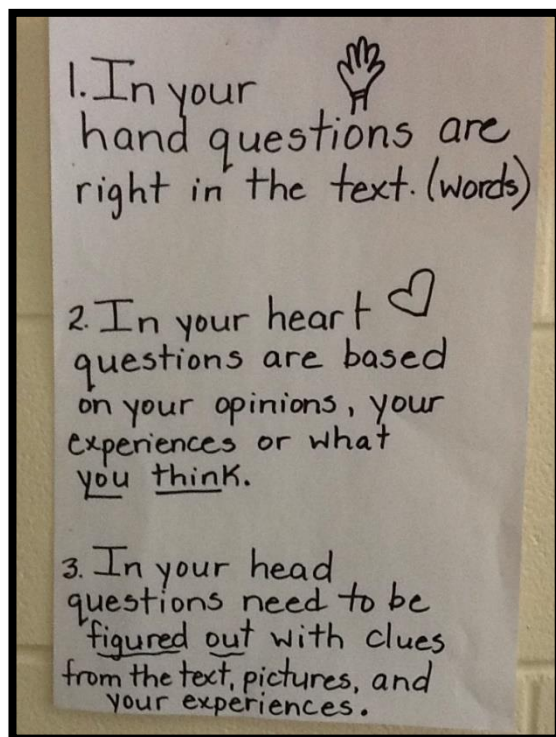 1. In your
hand questions are
right in the text. (words)
2. In your heart
questions are based
on your opinions, your
experiences or what
you think.
3. In your head
questions need to be
figured out with clues
from the text, pictures, and
your experiences.